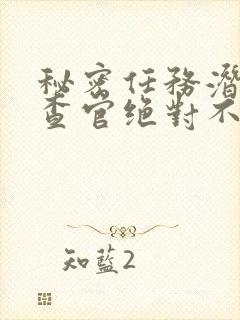 秘密任務潛
查官绝對不
知藍2